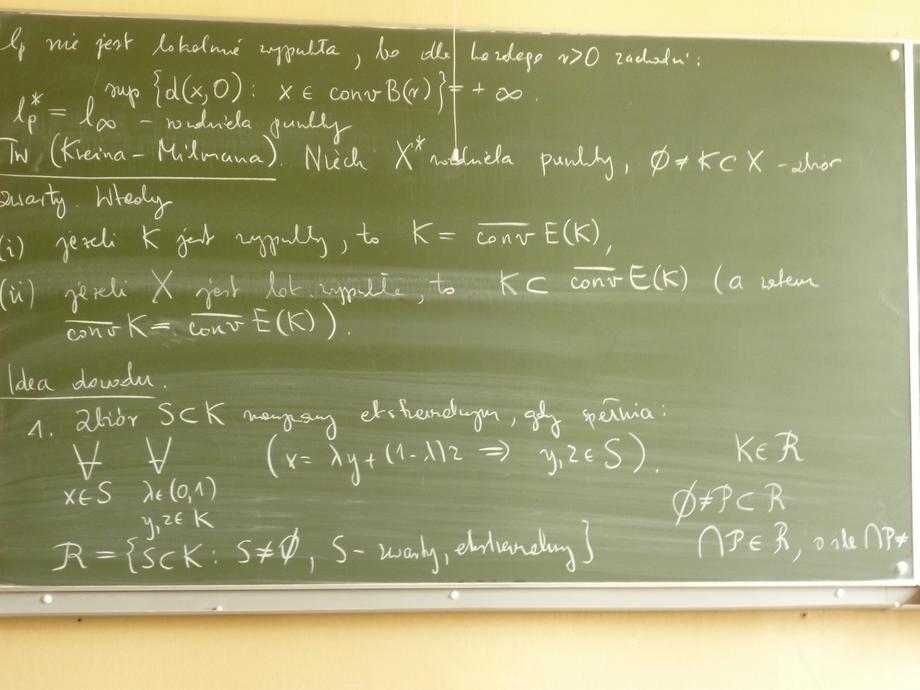 lp nie jest lokalnie wypukła, bo dla każdego r>0 zachodzi:
sup {d(x,0): x ∈ conv B(r)} = +∞.
lp* = l∞ - rozdziela punkty
Tw (Kreina-Milmana). Niech X* rozdziela punkty, ∅≠K⊂X - zbiór
zwarty. Wtedy
(i) jeżeli K jest wypukły, to K = \overline{conv} E(K),
(ii) jeżeli X jest lok. wypukła, to K⊂ \overline{conv} E(K) (a zatem
\overline{conv} K = \overline{conv} E(K)).
Idea dowodu.
1. Zbiór S⊂K nazywamy ekstremalnym, gdy spełnia:
∀ ∀ (x = λy+(1-λ)z ⇒ y,z∈S). K∈ℛ
x∈S λ∈(0,1)
y,z∈K
∅≠P⊂ℛ
ℛ = {S⊂K: S≠∅, S - zwarty, ekstremalny}
⋂P∈ℛ, o ile ⋂P≠